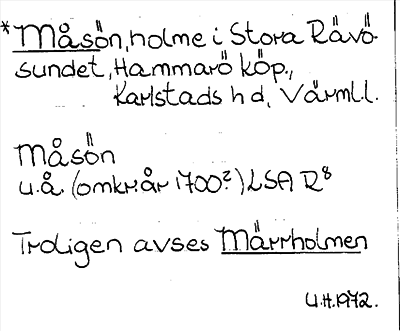 *Måsön, holme i Stora Rävö-
sundet, Hammarö köp.,
Karlstads hd, Värml.l.
Måsön
u.å. (omkr. år 1700?) LSA R8
Troligen avses Märrholmen
U.H. 1972.